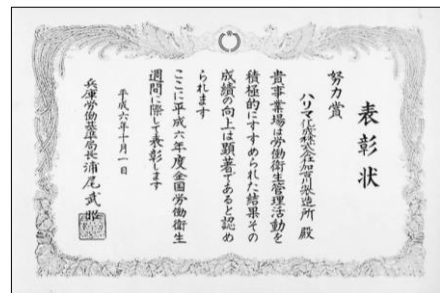 表彰状
努力賞
ハリマ化成株式会社加古川製造所 殿
貴事業場は労働衛生管理活動を
積極的にすすめられた結果その
成績の向上は顕著であると認め
られます
ここに平成六年度全国労働衛生
週間に際して表彰します
平成六年十月一日
兵庫労働基準局長 浦尾武